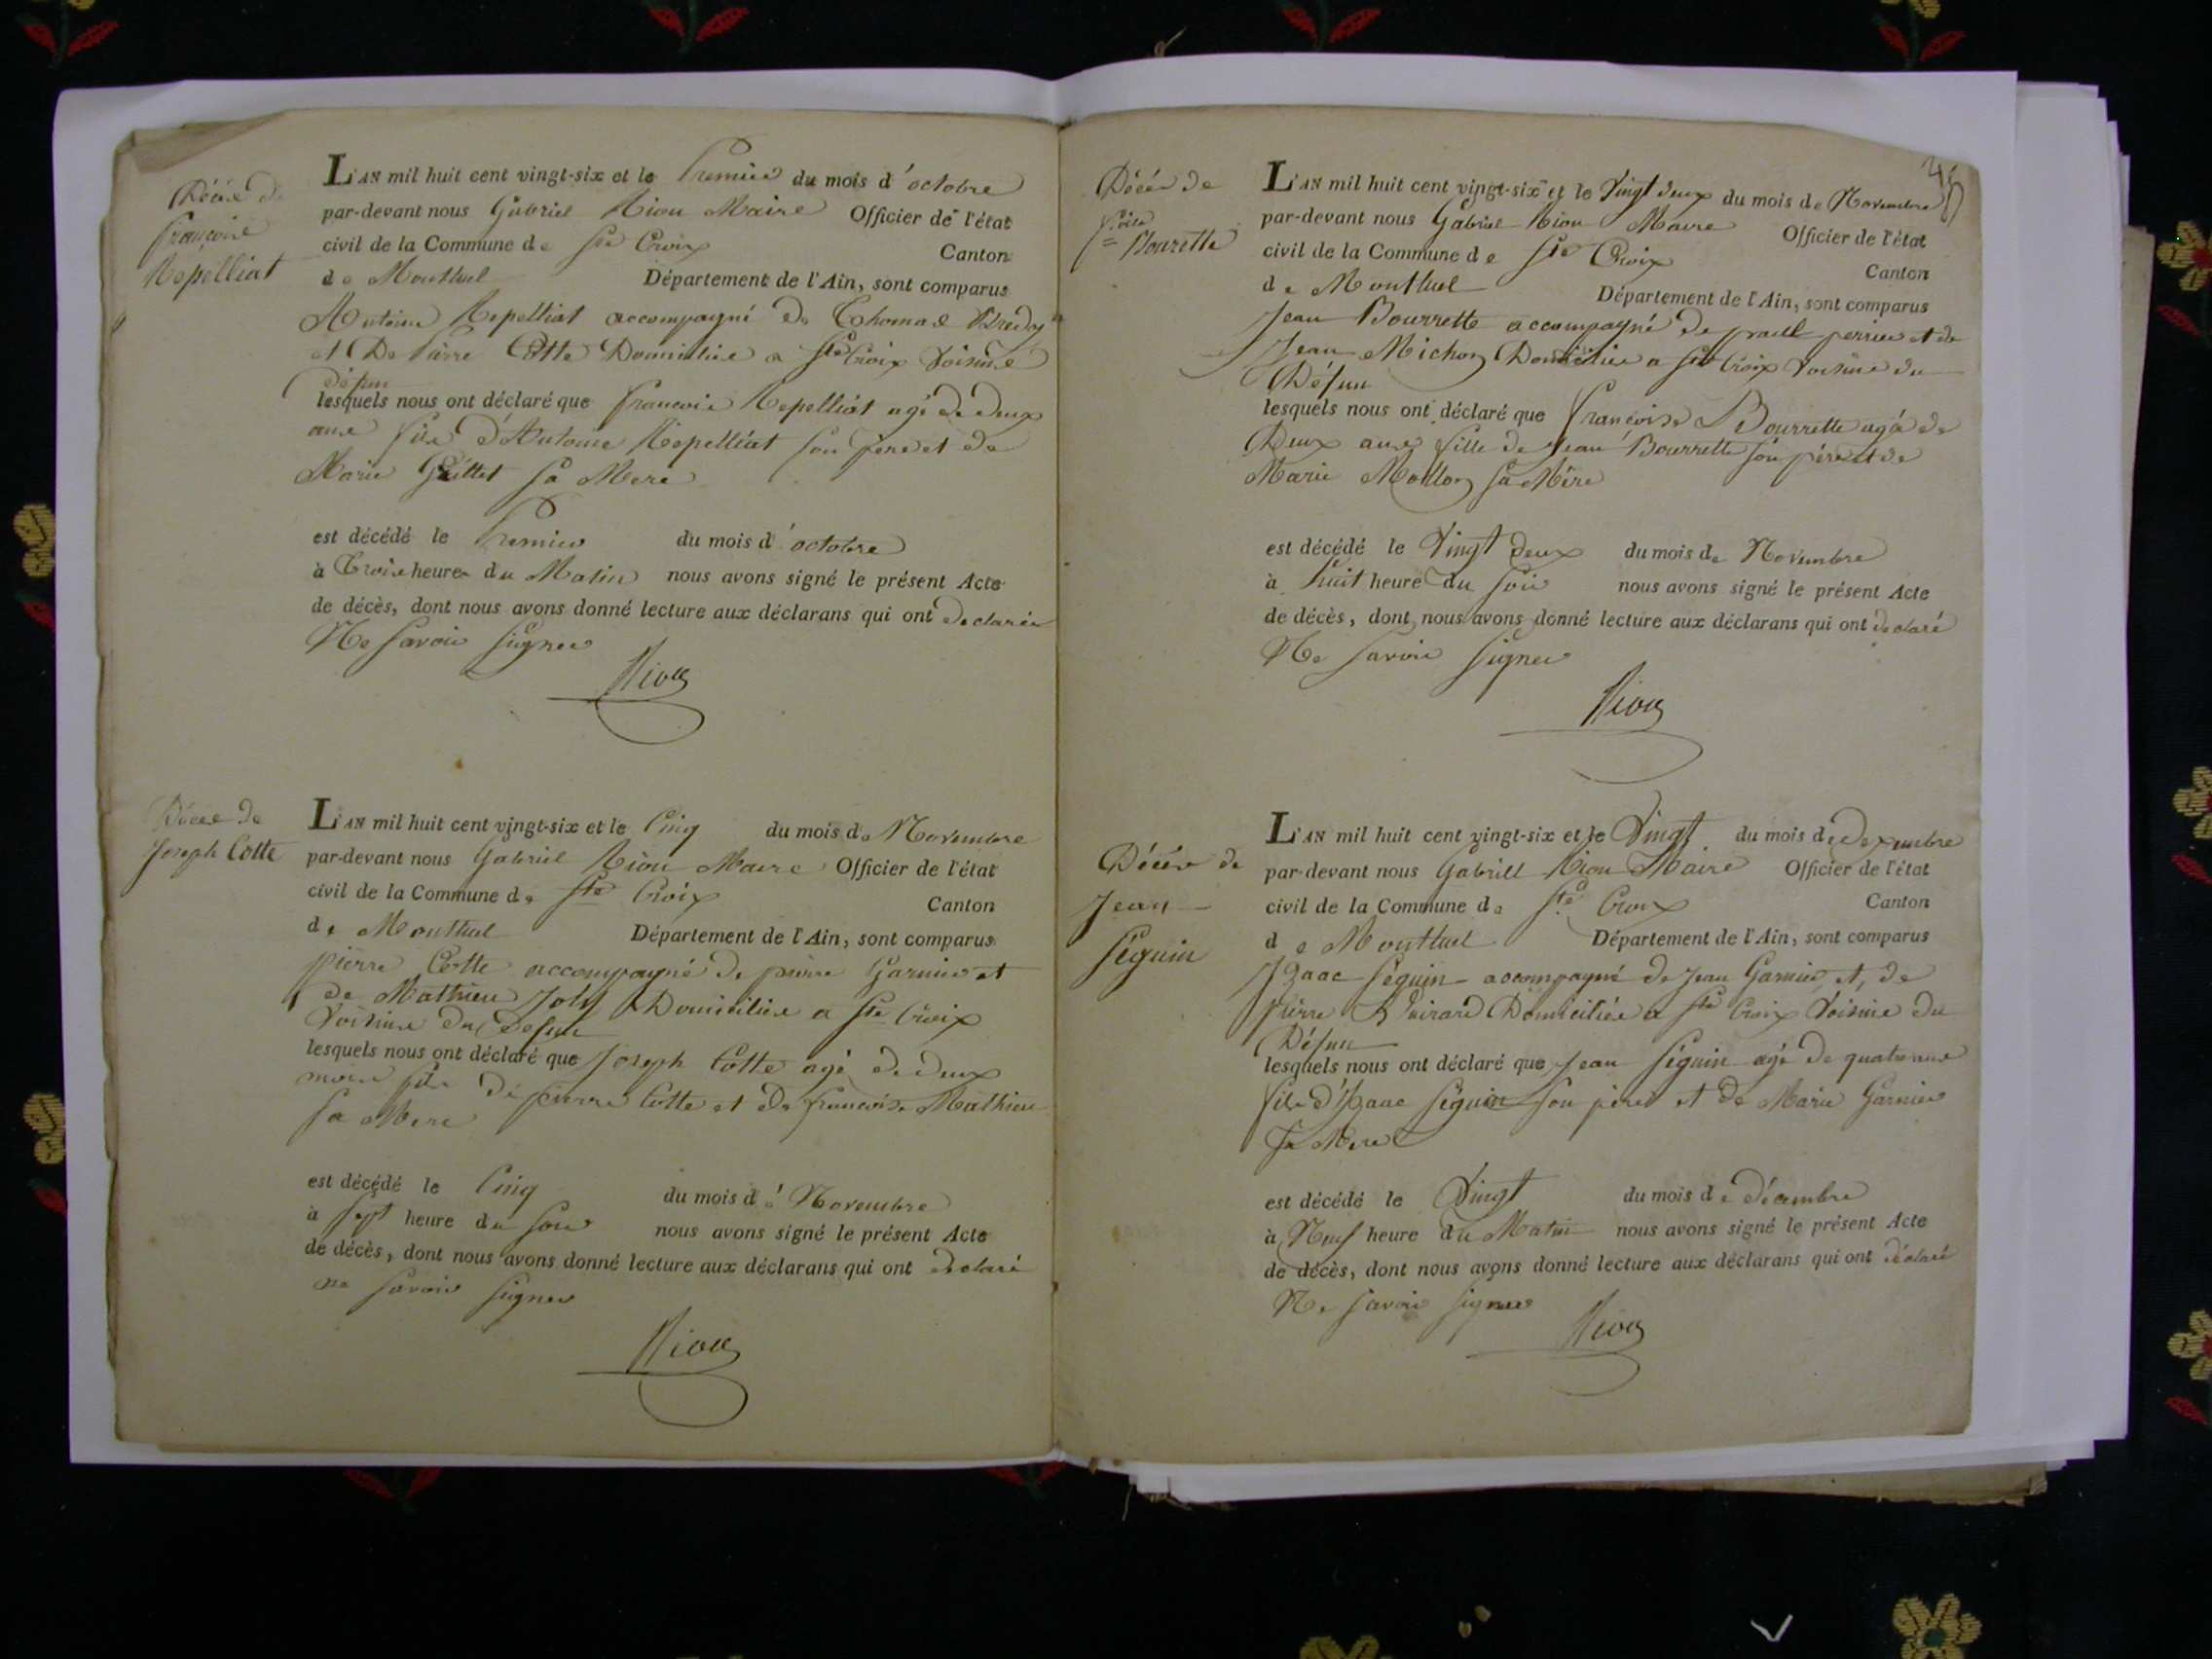 Décès de
françois
Repelliat
L'AN mil huit cent vingt-six et le Premier du mois d'octobre
par-devant nous Gabriel Riou Maire Officier de l'état
civil de la Commune de Ste Croix Canton
de Montluel Département de l'Ain, sont comparus
Antoine Repelliat accompagné de Thomas
et De Pierre Cotte Domicilié a Ste Croix Voisins
défun
lesquels nous ont déclaré que francois Repelliat agé de deux
ans fils d'Antoine Repelliat son pere et de
Marie Guillet sa Mere
est décédé le Premier du mois d'octobre
à Trois heure du Matin nous avons signé le présent Acte
de décès, dont nous avons donné lecture aux déclarans qui ont declarés
Ne savoir signer
Riou
Décès de
Joseph Cotte
L'AN mil huit cent vingt-six et le Cinq du mois de Novembre
par-devant nous Gabriel Riou Maire Officier de l'état
civil de la Commune de Ste Croix Canton
de Montluel Département de l'Ain, sont comparus
pierre Cotte accompagné de pierre Garnier et
de Mathieu Joly Domicilié a Ste Croix
Voisins du Defun
lesquels nous ont déclaré que Joseph Cotte agé de deux
mois fils de pierre Cotte et De francoise Mathieu
sa Mere
est décédé le Cinq du mois de Novembre
à sept heure du soir nous avons signé le présent Acte
de décès, dont nous avons donné lecture aux déclarans qui ont declaré
ne savoir signer
Riou
Décès de
Bourette
L'AN mil huit cent vingt-six et le Vingt deux du mois de Novembre
par-devant nous Gabriel Riou Maire Officier de l'état
civil de la Commune de Ste Croix Canton
de Montluel Département de l'Ain, sont comparus
Jean Bourrette accompagné de perrier et de
Jean Michon Domicilié a Ste Croix Voisins du
Défun
lesquels nous ont déclaré que françoise Bourrette agé de
Deux ans fille de Jean Bourrette son père et de
Marie Mollon sa Mère
est décédé le Vingt deux du mois de Novembre
à huit heure du soir nous avons signé le présent Acte
de décès, dont nous avons donné lecture aux déclarans qui ont declaré
Ne savoir signer
Riou
Décès de
Jean
Séguin
L'AN mil huit cent vingt-six et le Vingt du mois de decembre
par-devant nous Gabriell Riou Maire Officier de l'état
civil de la Commune de Ste Croix Canton
de Montluel Département de l'Ain, sont comparus
Izaac Séguin accompagné de Jean Garnier et, de
pierre Domicilié a Ste Croix Voisins du
Défun
lesquels nous ont déclaré que Jean Séguin agé de quatre ans
fils d'Izaac Séguin son père et de Marie Garnier
sa Mere
est décédé le Vingt du mois de décembre
à Neuf heure du Matin nous avons signé le présent Acte
de décès, dont nous avons donné lecture aux déclarans qui ont déclaré
Ne savoir signer
Riou